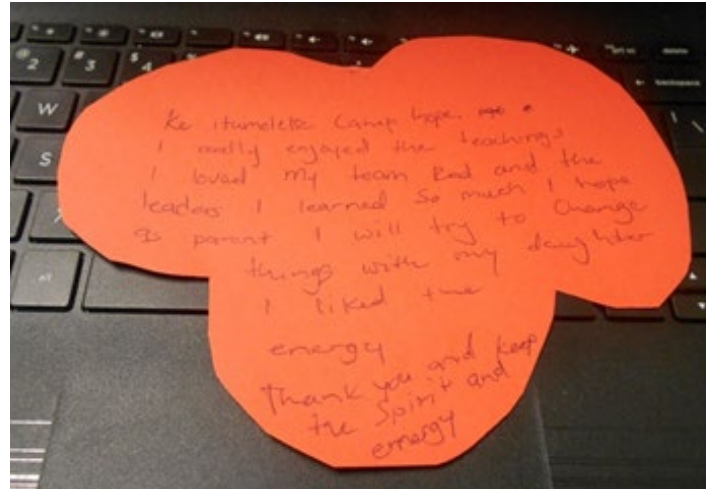 Ke itumeletse Camp hope.
I really enjoyed the teachings
I loved my team Red and the
leaders I learned so much I hope
as parent I will try to change
things with my daughter
I liked the
energy
Thank you and keep
the Spirit and
energy
@
2
#
3
$
4
W
S
delete
backspace
alt